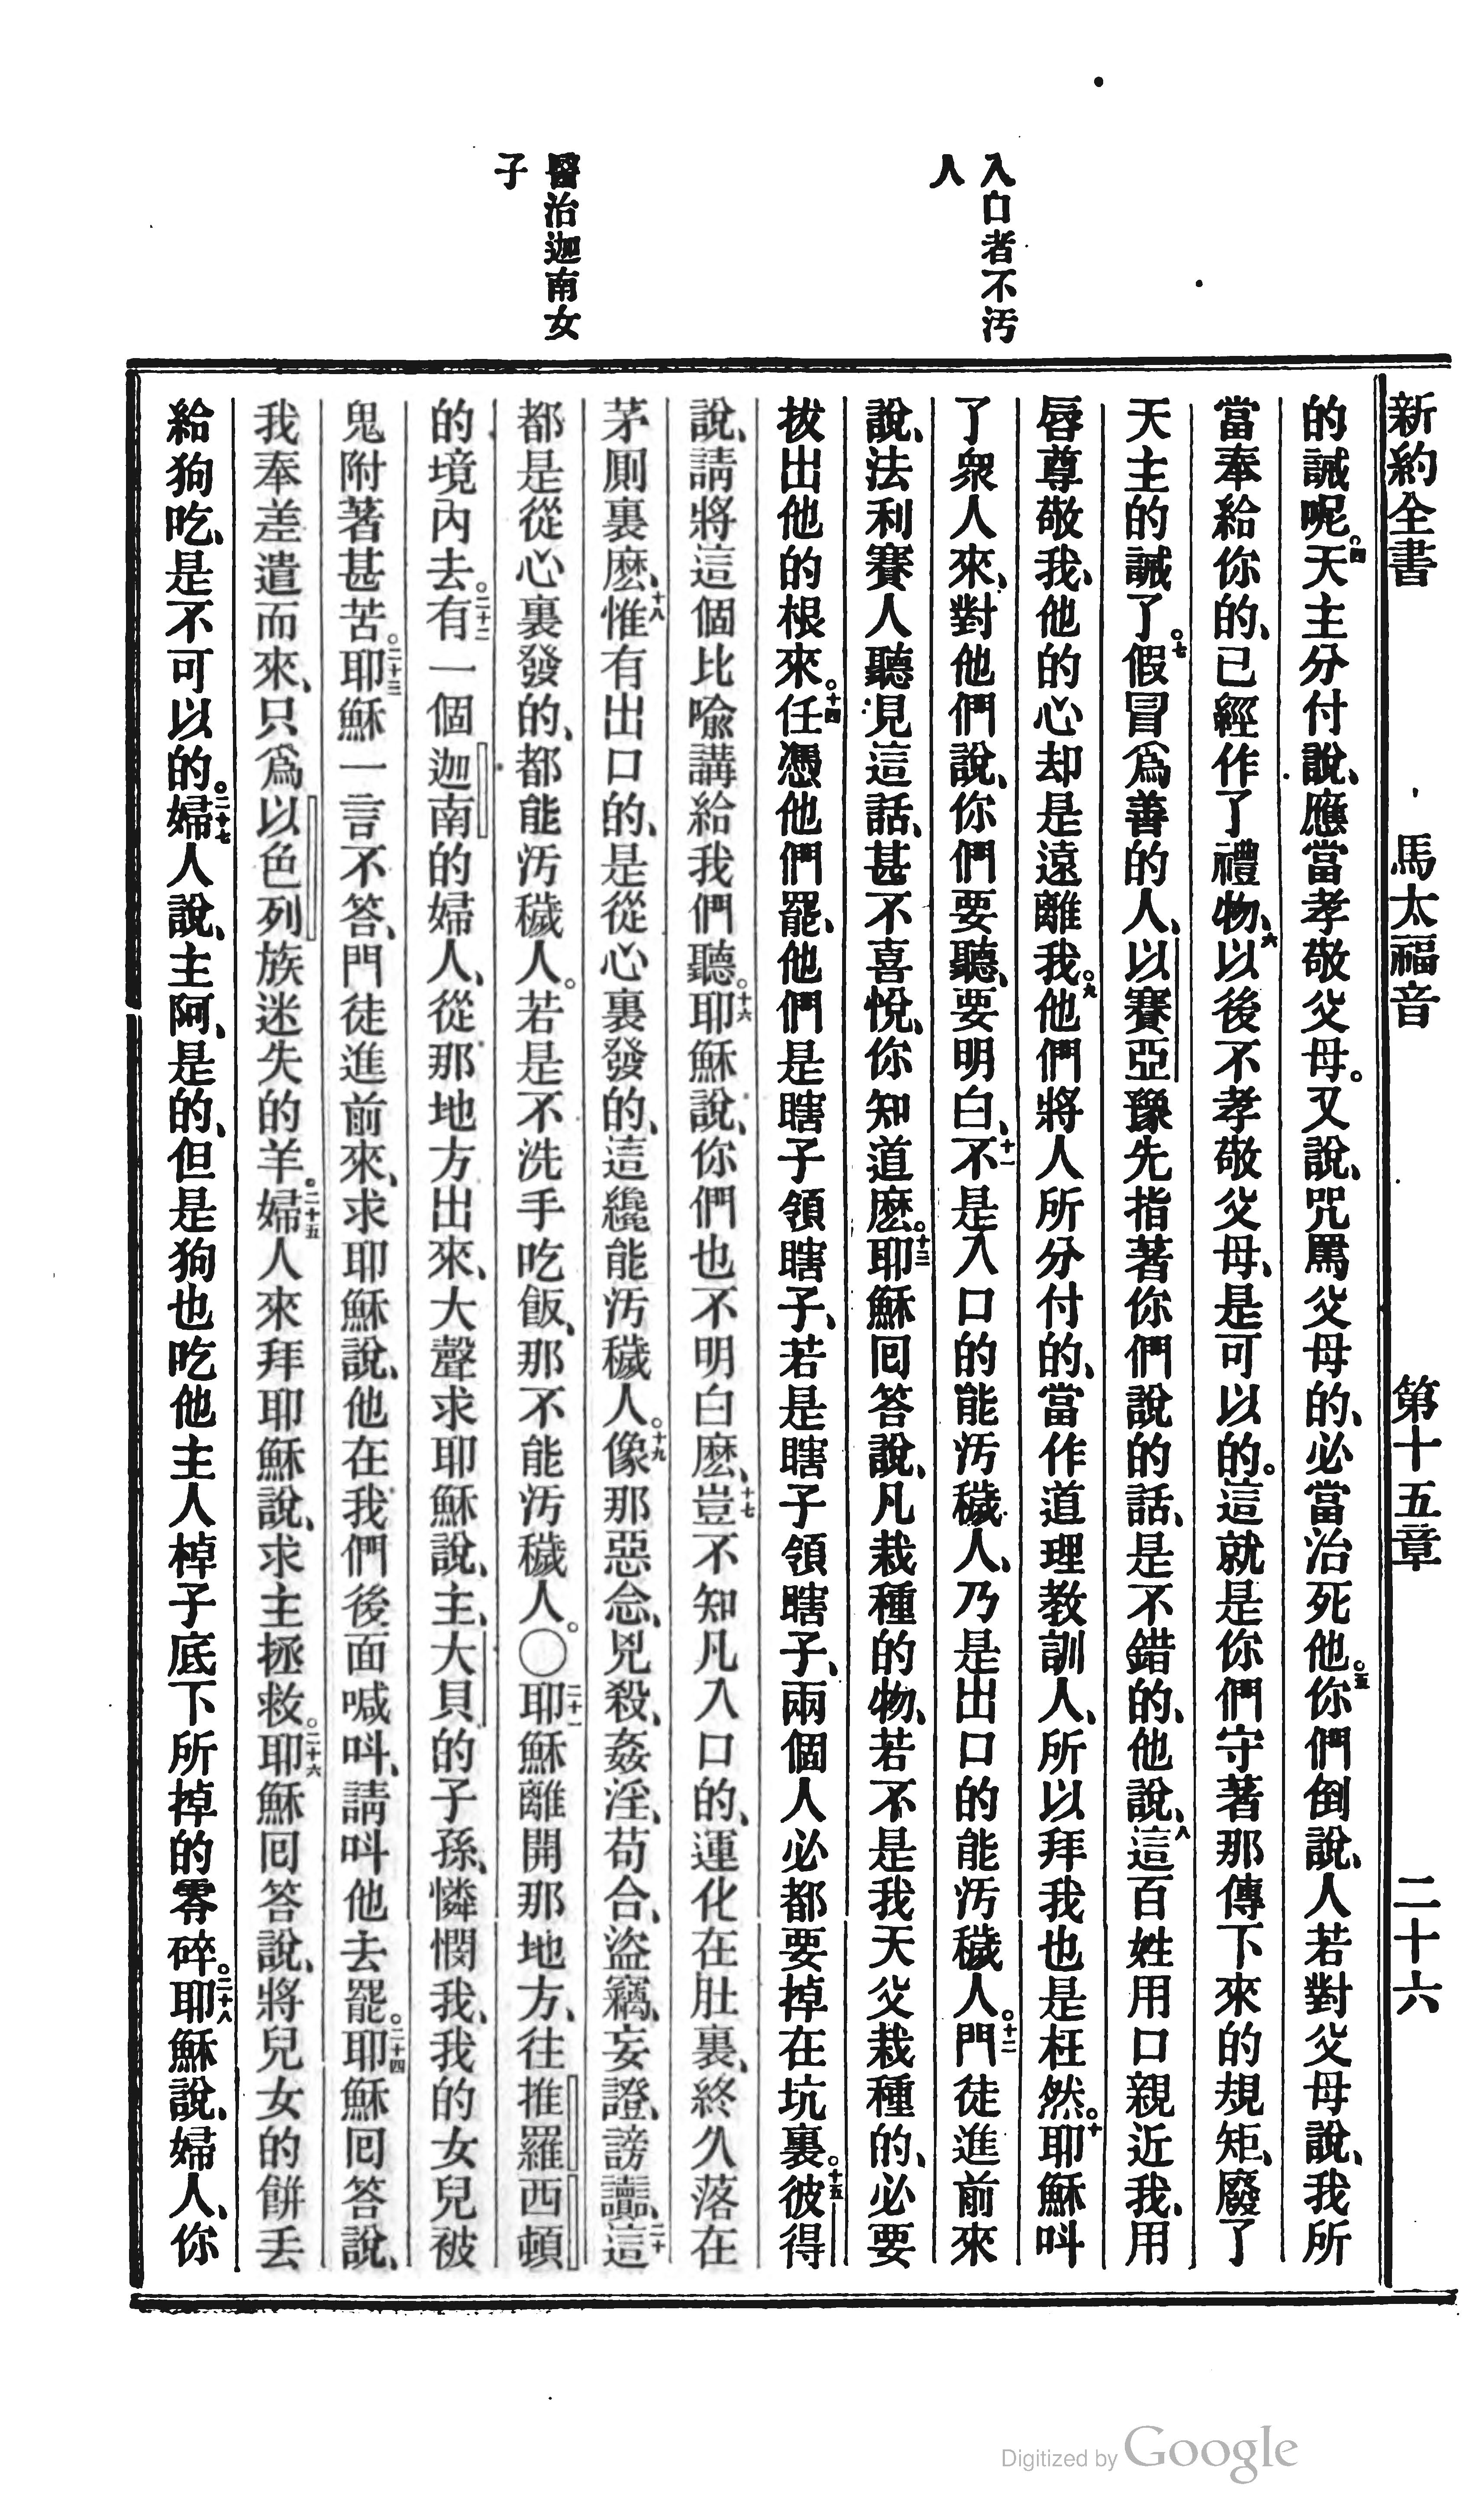 新約全書 馬太福音 第十五章 二十六
入口者不汚
人
醫治迦南女
子
的誡呢。四天主分付說、應當孝敬父母。又說、咒罵父母的、必當治死他。五你們倒說、人若對父母說、我所
當奉給你的、已經作了禮物、六以後不孝敬父母、是可以的。這就是你們守著那傳下來的規矩、廢了
天主的誡了。七假冒爲善的人、以賽亞豫先指著你們說的話、是不錯的、他說、八這百姓用口親近我、用
唇尊敬我、他的心却是遠離我。九他們將人所分付的、當作道理教訓人、所以拜我也是枉然。十耶穌呌
了衆人來、對他們說、你們要聽、要明白、十一不是入口的能汚穢人、乃是出口的能汚穢人。十二門徒進前來
說、法利賽人聽見這話、甚不喜悅、你知道麽。十三耶穌回答說、凡栽種的物、若不是我天父栽種的、必要
拔出他的根來。十四任憑他們罷、他們是瞎子領瞎子、若是瞎子領瞎子、兩個人必都要掉在坑裏。十五彼得
說、請將這個比喻講給我們聽。十六耶穌說、你們也不明白麽、十七豈不知凡入口的、運化在肚裏、終久落在
茅厠裏麽、十八惟有出口的、是從心裏發的、這纔能汚穢人。十九像那惡念、兇殺、姦淫、苟合、盜竊、妄證、謗讟、二十這
都是從心裏發的、都能汚穢人。若是不洗手吃飯、那不能汚穢人。〇二十一耶穌離開那地方、往推羅西頓
的境內去。二十二有一個迦南的婦人、從那地方出來、大聲求耶穌說、主、大䦉的子孫、憐憫我、我的女兒被
鬼附著甚苦。二十三耶穌一言不答、門徒進前來、求耶穌說、他在我們後面喊呌、請呌他去罷。二十四耶穌回答說、
我奉差遣而來、只爲以色列族迷失的羊。二十五婦人來拜耶穌說、求主拯救。二十六耶穌回答說、將兒女的餅丢
給狗吃、是不可以的。二十七婦人說、主阿、是的、但是狗也吃他主人棹子底下所掉的零碎。二十八耶穌說、婦人、你
Digitized by Google